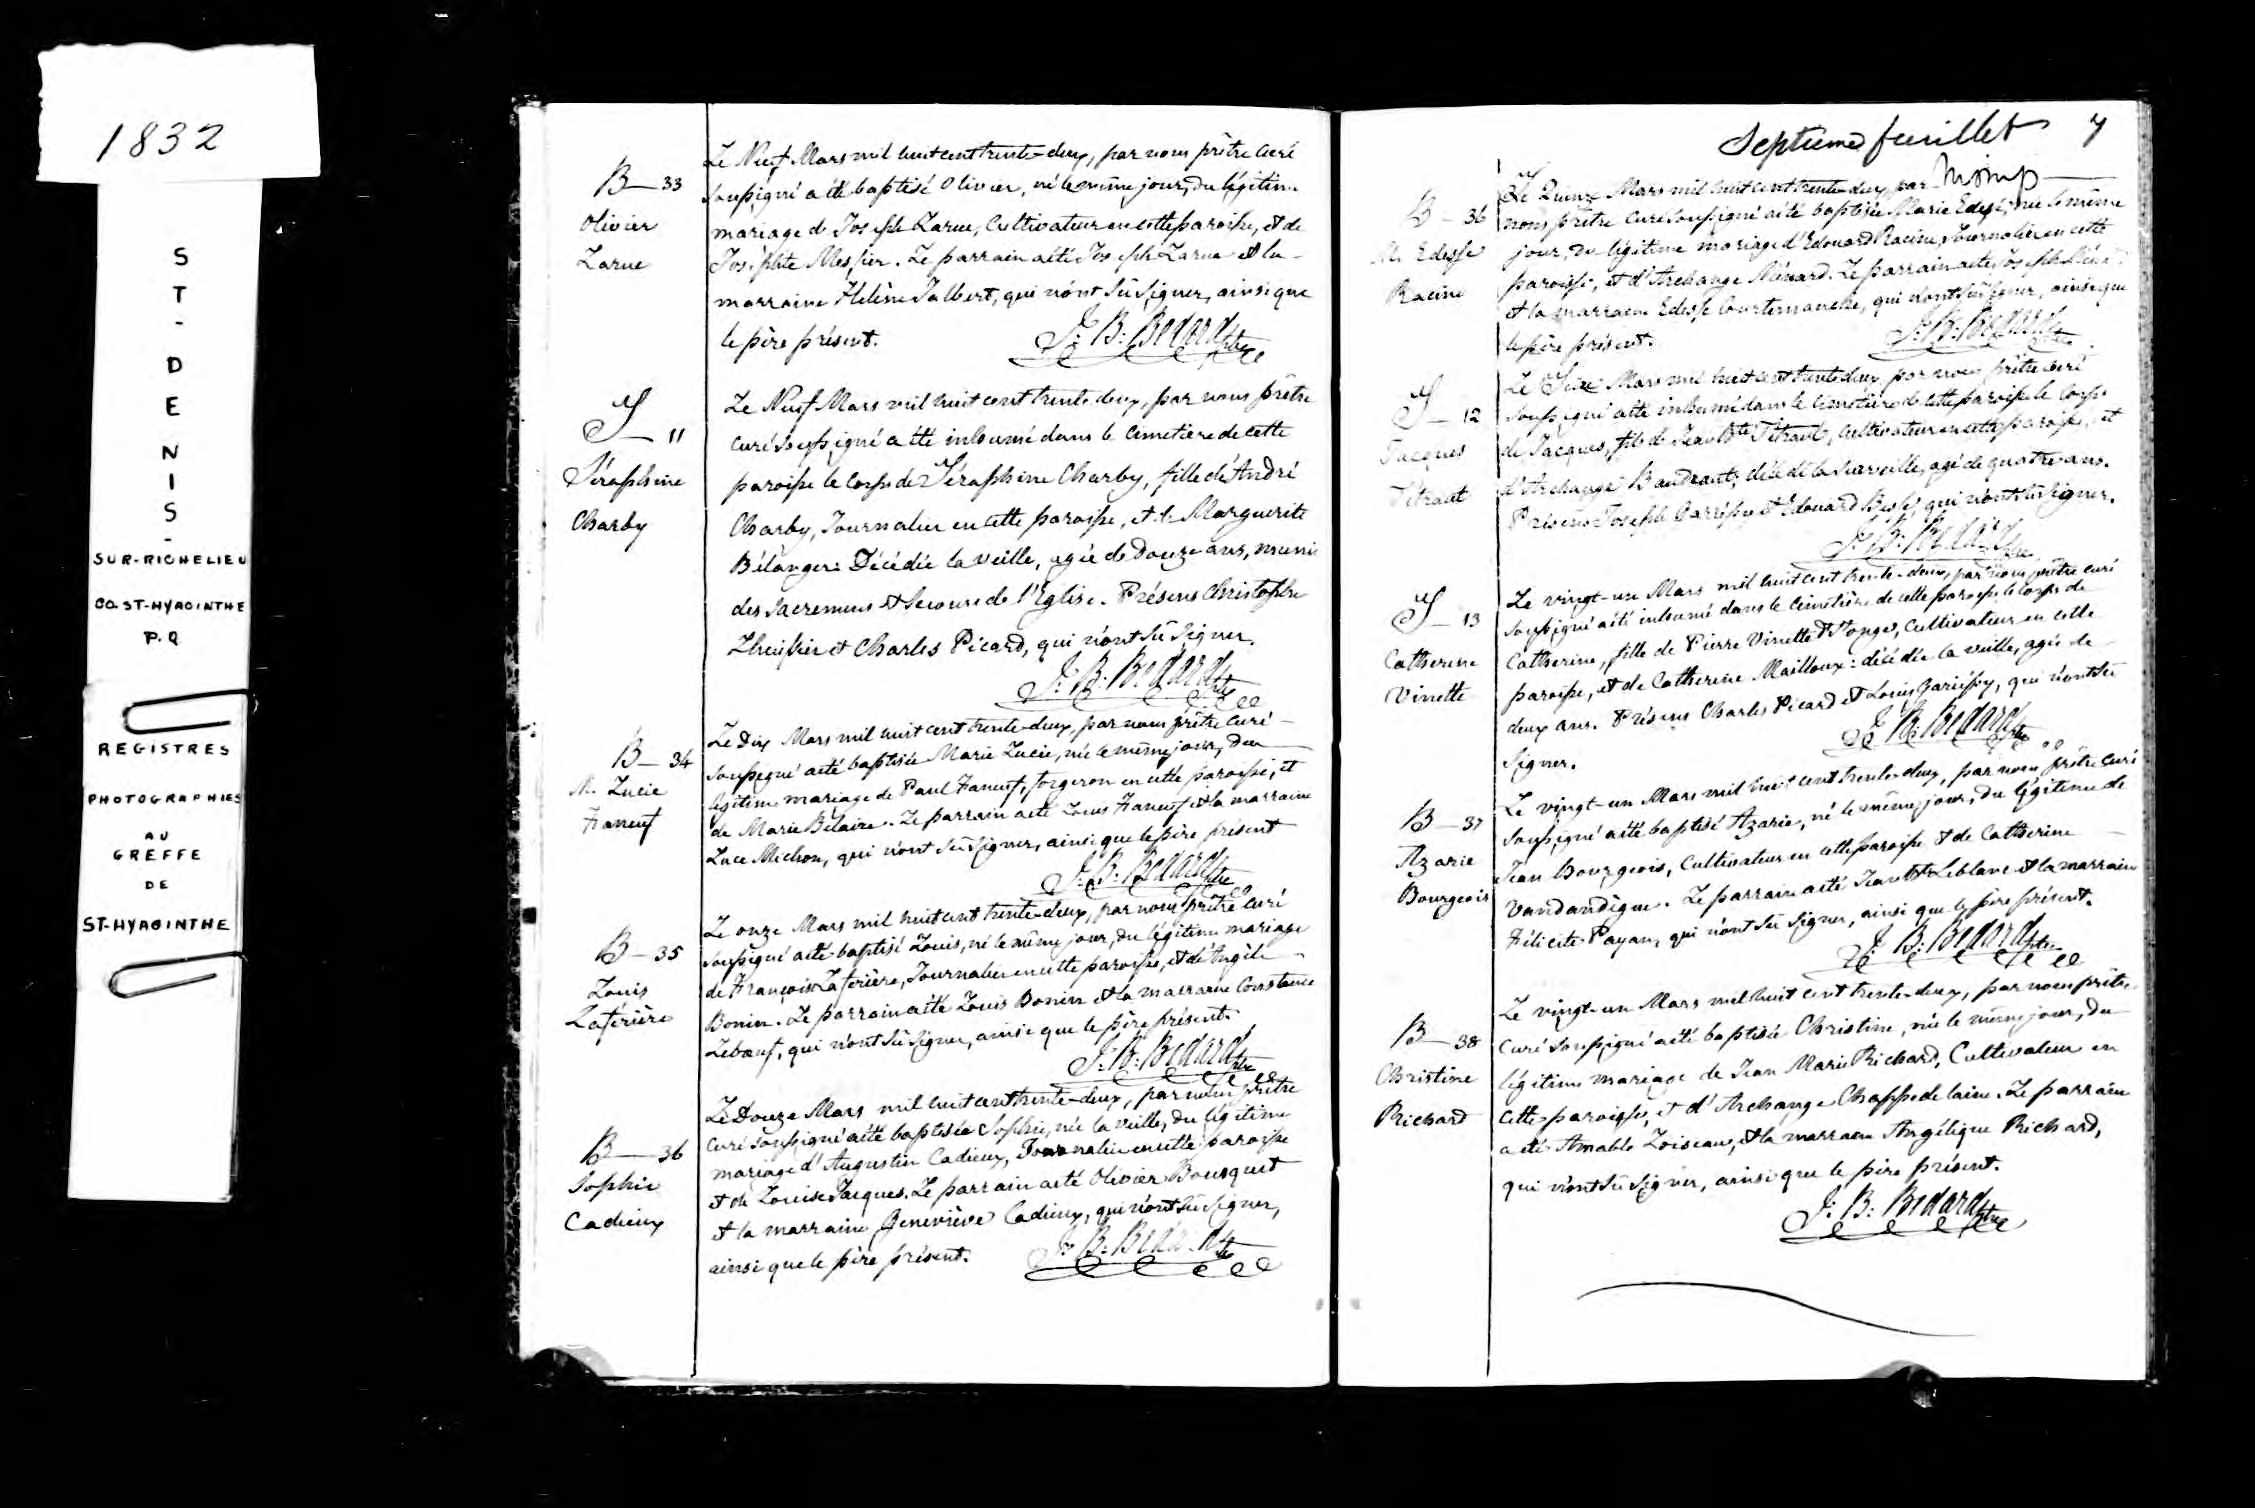 1832
ST-DENIS-
SUR-RICHELIEU
CO. ST-HYACINTHE
P.Q
REGISTRES
PHOTOGRAPHIES
AU
GREFFE
DE
ST-HYACINTHE
B—33
Olivier
Larue
Le Neuf Mars mil huit cent trente-deux, par nous prêtre curé
soussigné a été baptisé Olivier, né le même jour, du légitime
mariage de Joseph Larue, Cultivateur en cette paroisse, et de
Josephte Messier. Le parrain a été Joseph Larue et la
marraine Hélène Jalbert, qui n'ont sû signer, ainsi que
le père présent.
J: B: Bedard ptre
S—11
Séraphine
Charby
Le Neuf Mars mil huit cent trente-deux, par nous prêtre
curé soussigné a été inhumé dans le cimetière de cette
paroisse le corps de Séraphine Charby, fille d'André
Charby, Journalier en cette paroisse, et de Marguerite
Bélanger: Décédée la veille, agée de Douze ans, munie
des sacremens et secours de l'Eglise. Présens Christophe
Lheussier et Charles Picard, qui n'ont sû signer.
J: B: Bedard ptre
B—34
M. Lucie
Faneuf
Le Dix Mars mil huit cent trente-deux, par nous prêtre curé
soussigné a été baptisée Marie Lucie, née le même jour, du
légitime mariage de Paul Faneuf, forgeron en cette paroisse, et
de Marie Bélaire. Le parrain a été Louis Faneuf et la marraine
Luce Michon, qui n'ont sû signer, ainsi que le père présent
J: B: Bedard ptre
B—35
Louis
Laferière
Le onze Mars mil huit cent trente-deux, par nous prêtre curé
soussigné a été baptisé Louis, né le même jour, du légitime mariage
de François Laferière, Journalier en cette paroisse, et d'Angèle
Bonin. Le parrain a été Louis Bonin et la marraine Constance
Lebœuf, qui n'ont sû signer, ainsi que le père présent.
J: B: Bedard ptre
B—36
Sophie
Cadieux
Le Douze Mars mil huit cent trente-deux, par nous prêtre
curé soussigné a été baptisée Sophie, née la veille, du légitime
mariage d'Augustin Cadieux, Journalier en cette paroisse
et de Louise Jacques. Le parrain a été Olivier Bousquet
et la marraine Geneviève Cadieux, qui n'ont sû signer,
ainsi que le père présent.
J: B: Bedard ptre
Septieme feuillet 7
B—36
M. Edesse
Racine
Le Quinze Mars mil huit cent trente-deux, par
nous prêtre curé soussigné a été baptisée Marie Edesse, née le même
jour, du légitime mariage d'Edouard Racine, Journalier en cette
paroisse, et d'Archange Ménard. Le parrain a été Joseph
et la marraine Edesse Courtemanche, qui n'ont sû signer, ainsi que
le père présent.
J: B: Bedard ptre
S—12
Jacques
Tétraut
Le Seize Mars mil huit cent trente-deux, par nous prêtre curé
soussigné a été inhumé dans le cimetière de cette paroisse le corps
de Jacques, fils de Jean Bte Tétraut, Cultivateur en cette paroisse, et
d'Archange Baudraut; décédé la surveille, agé de quatre ans.
Présens Joseph et Edouard qui n'ont sû signer.
J: B: Bedard ptre
S—13
Catherine
Vinette
Le vingt-un Mars mil huit cent trente-deux, par nous prêtre curé
soussigné a été inhumé dans le cimetière de cette paroisse le corps de
Catherine, fille de Pierre Vinette Cultivateur en cette
paroisse, et de Catherine Mailloux: décédée la veille, agée de
deux ans. Présens Charles Picard et Louis Gariépy, qui n'ont sû
signer.
J: B: Bedard ptre
B—37
Azarie
Bourgeois
Le vingt-un Mars mil huit cent trente-deux, par nous prêtre curé
soussigné a été baptisé Azarie, né le même jour, du légitime de
Jean Bourgeois, Cultivateur en cette paroisse et de Catherine
Vandandègue. Le parrain a été Jean Bte Leblanc et la marraine
Félicité Payan, qui n'ont sû signer, ainsi que le père présent.
J: B: Bedard ptre
B—38
Christine
Richard
Le vingt-un Mars mil huit cent trente-deux, par nous prêtre
curé soussigné a été baptisée Christine, née le même jour, du
légitime mariage de Jean Marie Richard, Cultivateur en
cette paroisse, et d'Archange Chappedelaine. Le parrain
a été Amable Loiseau, et la marraine Angélique Richard,
qui n'ont sû signer, ainsi que le père présent.
J: B: Bedard ptre